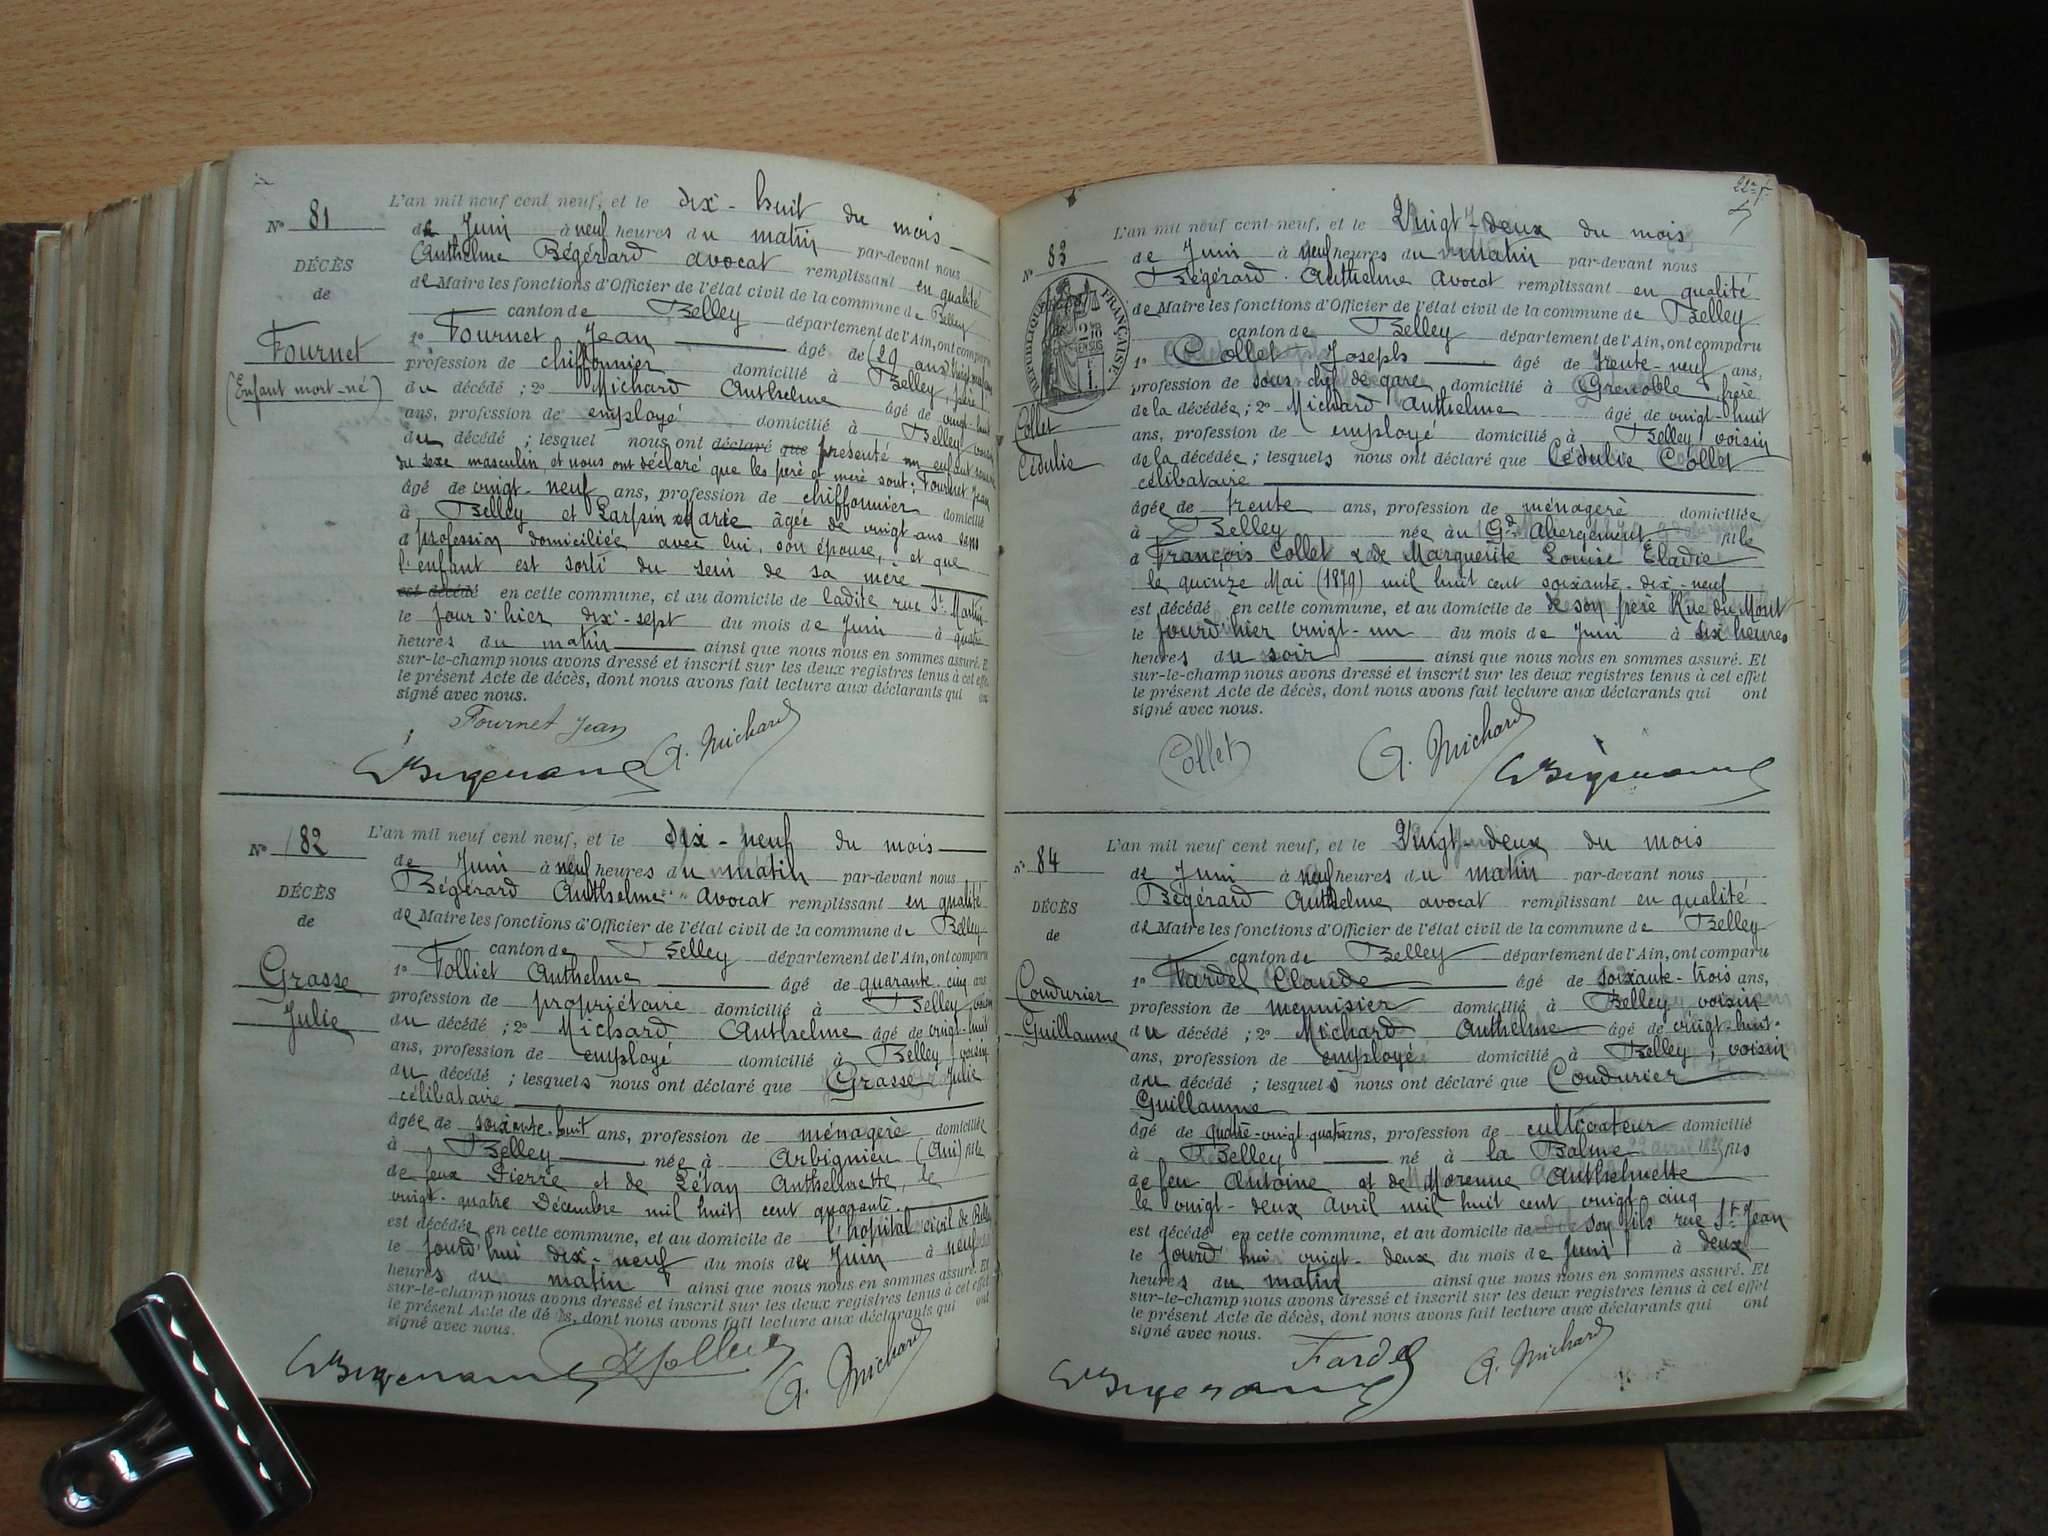 N° 81
DÉCÈS
de
Fournet
(Enfant mort-né)
L'an mil neuf cent neuf, et le dix-huit du mois
de Juin à neuf heures du matin par-devant nous
Anthelme Bégérard avocat remplissant en qualité
de Maire les fonctions d'Officier de l'état civil de la commune de Belley
canton de Belley département de l'Ain, ont comparu
1° Fournet Jean âgé de (29 ans) vingt-neuf ans
profession de chiffonnier domicilié à Belley, père
du décédé ; 2° Michard Anthelme âgé de vingt-huit
ans, profession de employé domicilié à Belley voisin
du décédé ; lesquel nous ont déclaré que présenté un enfant sans vie
du sexe masculin, et nous ont déclaré que les père et mère sont ; Fournet Jean
âgé de vingt-neuf ans, profession de chiffonnier domicilié
à Belley et Larpin Marie âgée de vingt ans sans
profession domiciliée avec lui, son épouse, et que
l'enfant est sorti du sein de sa mère
est décédé en cette commune, et au domicile de ladite rue St Martin
le jour d'hier dix-sept du mois de Juin à quatre
heures du matin ainsi que nous nous en sommes assuré. Et
sur-le-champ nous avons dressé et inscrit sur les deux registres tenus à cet effet
le présent Acte de décès, dont nous avons fait lecture aux déclarants qui ont
signé avec nous.
Fournet Jean
A. Michard
N° 82
DÉCÈS
de
Grasse
Julie
L'an mil neuf cent neuf, et le dix-neuf du mois
de Juin à neuf heures du matin par-devant nous
Bégérard Anthelme Avocat remplissant en qualité
de Maire les fonctions d'Officier de l'état civil de la commune de Belley
canton de Belley département de l'Ain, ont comparu
1° Folliet Anthelme âgé de quarante cinq ans
profession de propriétaire domicilié à Belley, voisin
du décédé ; 2° Michard Anthelme âgé de vingt-huit
ans, profession de employé domicilié à Belley, voisin
du décédé ; lesquels nous ont déclaré que Grasse Julie
célibataire
âgée de soixante-huit ans, profession de ménagère domiciliée
à Belley née à Arbignieu (Ain) fille
de feux Pierre et de Anthelmette, le
vingt-quatre Décembre mil huit cent quarante
est décédée en cette commune, et au domicile de l'hôpital civil de Belley
le jourd'hui dix-neuf du mois de Juin à neuf
heures du matin ainsi que nous nous en sommes assuré. Et
sur-le-champ nous avons dressé et inscrit sur les deux registres tenus à cet effet
le présent Acte de décès, dont nous avons fait lecture aux déclarants qui ont
signé avec nous.
A. Michard
N° 83
RÉPUBLIQUE FRANÇAISE
Collet
Cédulie
L'an mil neuf cent neuf, et le Vingt-deux du mois
de Juin à neuf heures du matin par-devant nous
Bégérard Anthelme Avocat remplissant en qualité
de Maire les fonctions d'Officier de l'état civil de la commune de Belley
canton de Belley département de l'Ain, ont comparu
1° Collet Joseph âgé de trente-neuf ans,
profession de sous chef de gare domicilié à Grenoble, frère
de la décédée ; 2° Michard Anthelme âgé de vingt-huit
ans, profession de employé domicilié à Belley voisin
de la décédée ; lesquels nous ont déclaré que Cédulie Collet
célibataire
âgée de trente ans, profession de ménagère domiciliée
à Belley née au Gd Abergement fille
d François Collet & de Marguerite Louise Eladie
le quinze Mai (1879) mil huit cent soixante-dix-neuf
est décédé en cette commune, et au domicile de son père Rue du Mont
le jourd'hier vingt-un du mois de Juin à dix heures
heures du soir ainsi que nous nous en sommes assuré. Et
sur-le-champ nous avons dressé et inscrit sur les deux registres tenus à cet effet
le présent Acte de décès, dont nous avons fait lecture aux déclarants qui ont
signé avec nous.
Collet
A. Michard
N° 84
DÉCÈS
de
Coudurier
Guillaume
L'an mil neuf cent neuf, et le Vingt-deux du mois
de Juin à neuf heures du matin par-devant nous
Bégérard Anthelme avocat remplissant en qualité
de Maire les fonctions d'Officier de l'état civil de la commune de Belley
canton de Belley département de l'Ain, ont comparu
1° Fardel Claude âgé de soixante-trois ans,
profession de menuisier domicilié à Belley, voisin
du décédé ; 2° Michard Anthelme âgé de vingt-huit
ans, profession de employé domicilié à Belley, voisin
du décédé ; lesquels nous ont déclaré que Coudurier
Guillaume
âgé de quatre-vingt quatre ans, profession de cultivateur domicilié
à Belley né à la Balme fils
de feu Antoine et de Morenne Anthelmette
le vingt-deux Avril mil huit cent vingt-cinq
est décédé en cette commune, et au domicile de son fils rue St Jean
le jourd'hui vingt-deux du mois de Juin à deux
heures du matin ainsi que nous nous en sommes assuré. Et
sur-le-champ nous avons dressé et inscrit sur les deux registres tenus à cet effet
le présent Acte de décès, dont nous avons fait lecture aux déclarants qui ont
signé avec nous.
Fardel
A. Michard